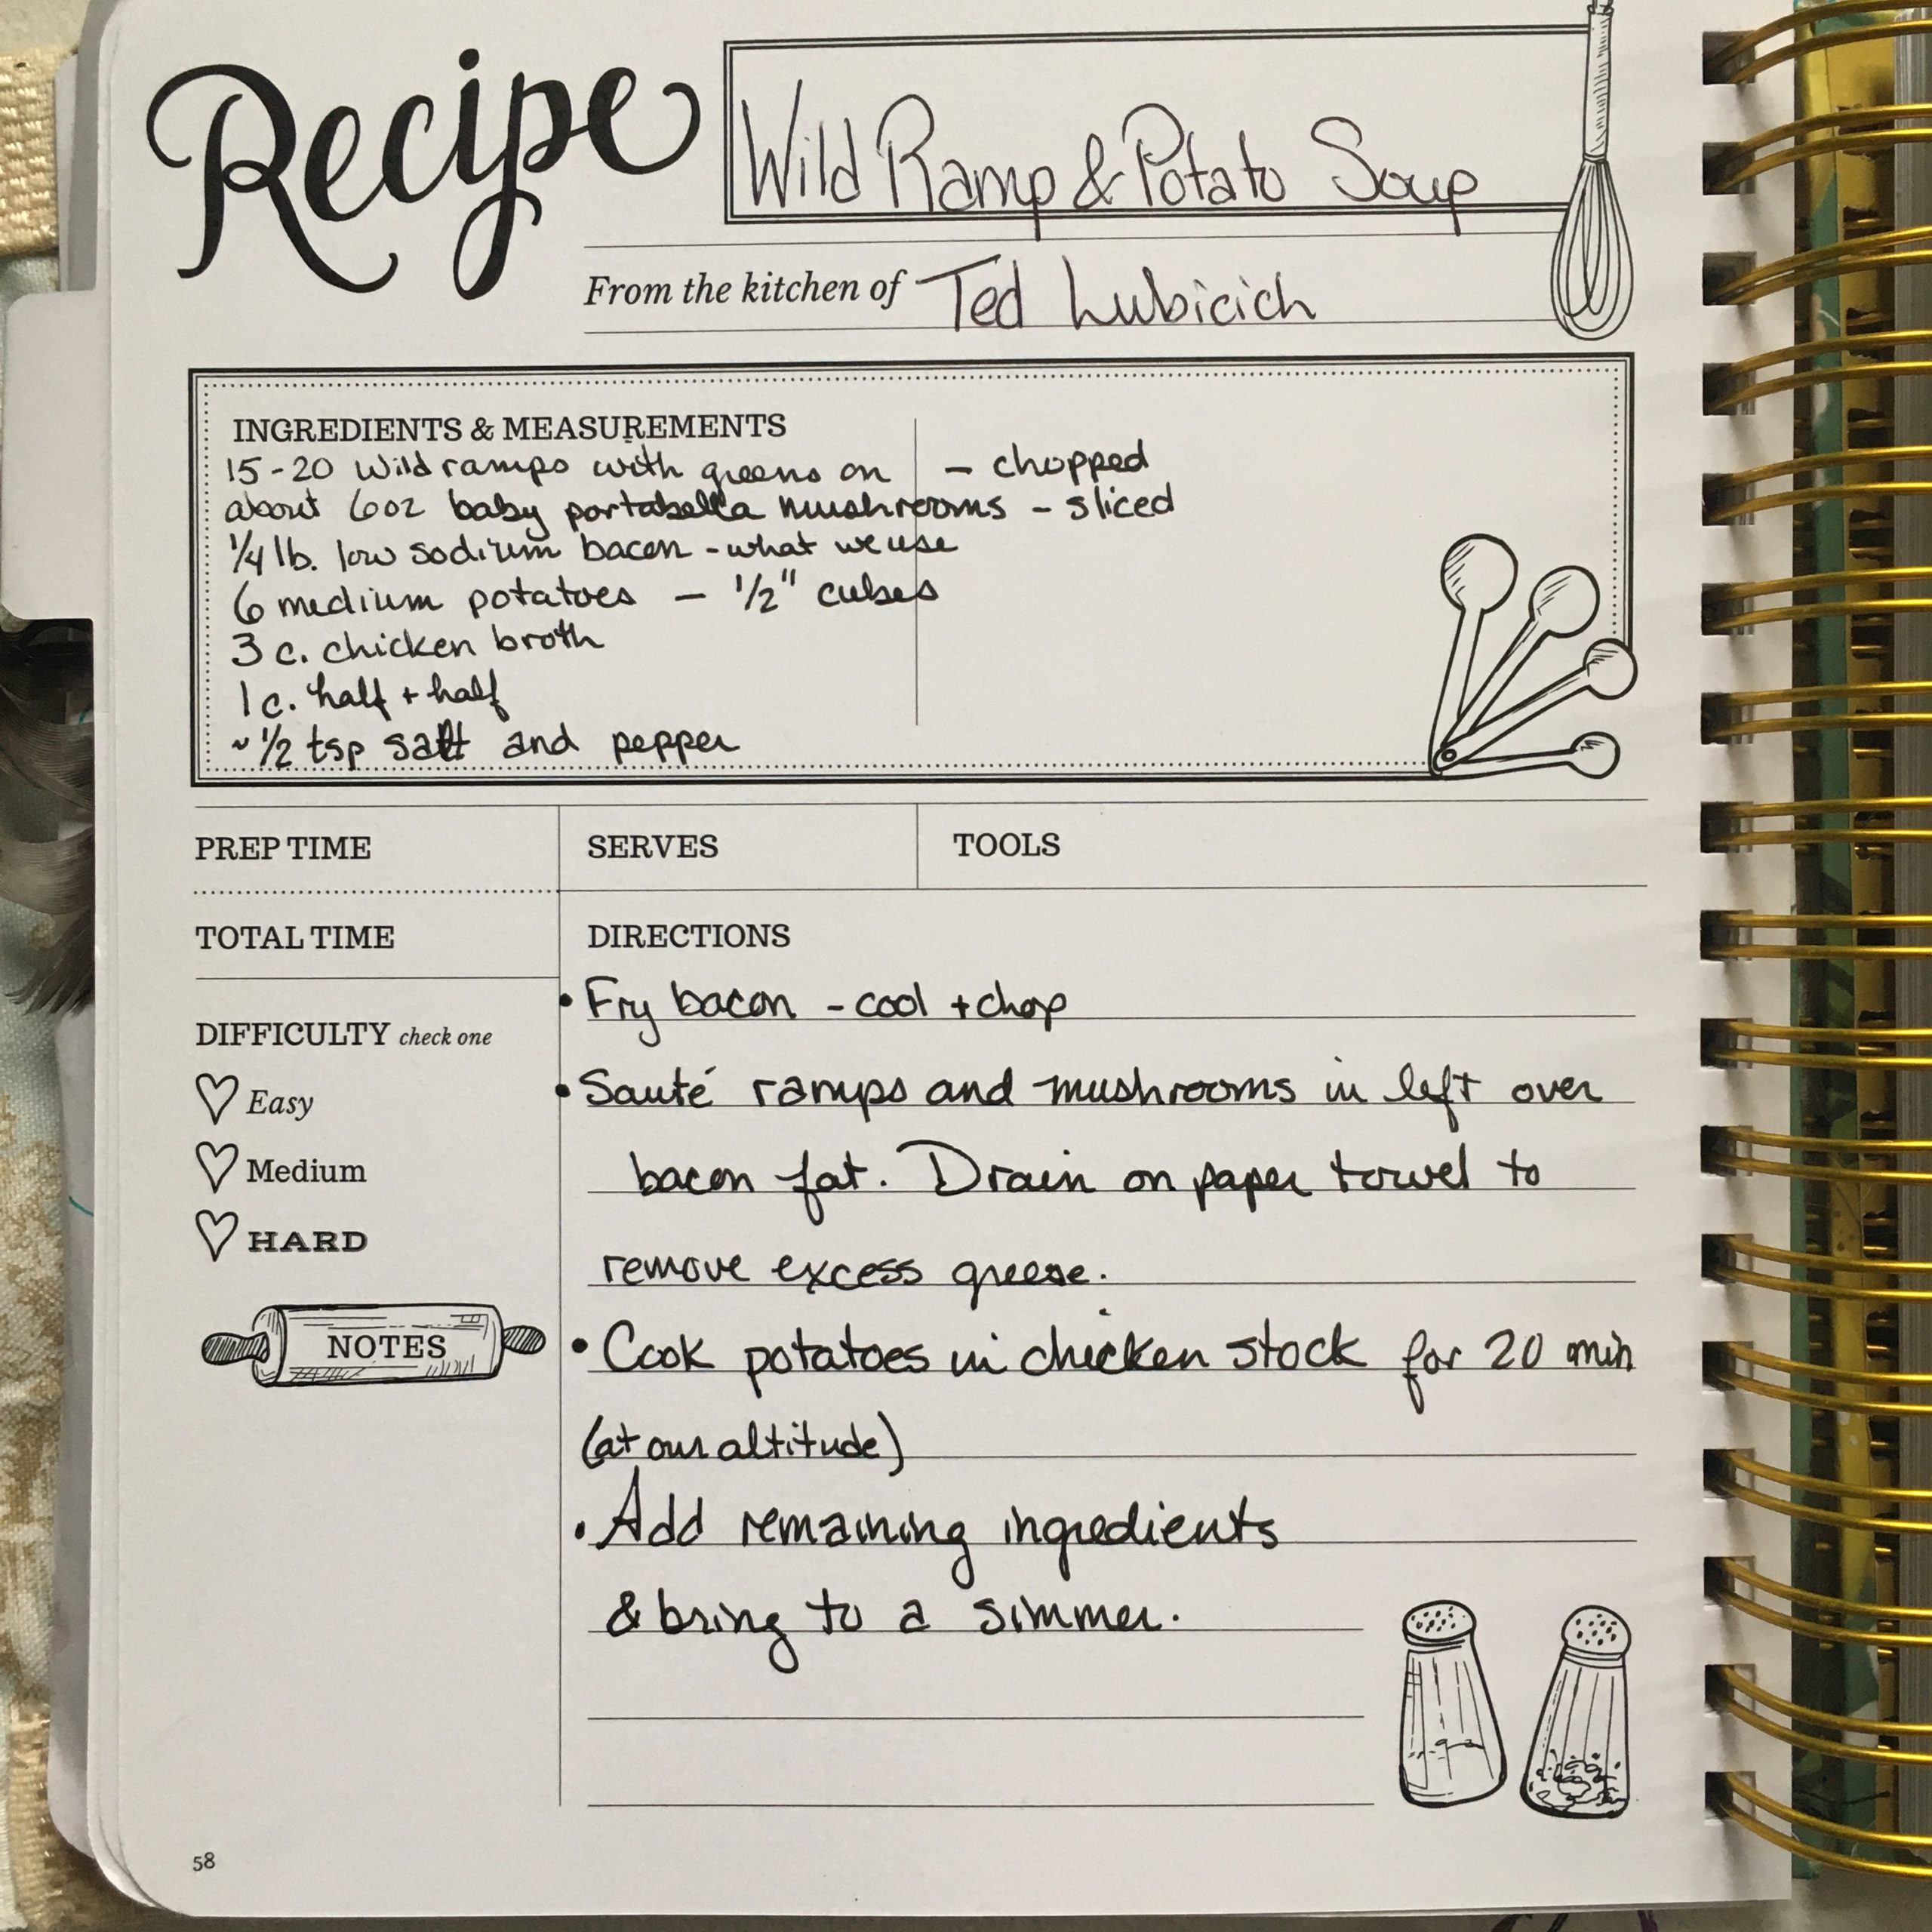 Recipe
Wild Ramp & Potato Soup
From the kitchen of Ted Lubicich
INGREDIENTS & MEASUREMENTS
15-20 wild ramps with greens on - chopped
about 6oz baby portabella mushrooms - sliced
1/4 lb. low sodium bacon - what we use
6 medium potatoes - 1/2" cubes
3 c. chicken broth
1 c. half + half
~ 1/2 tsp salt and pepper
PREP TIME
SERVES
TOOLS
TOTAL TIME
DIFFICULTY check one
Easy
Medium
HARD
NOTES
DIRECTIONS
• Fry bacon - cool + chop
• Sauté ramps and mushrooms in left over
bacon fat. Drain on paper towel to
remove excess grease.
• Cook potatoes in chicken stock for 20 min
(at our altitude)
• Add remaining ingredients
& bring to a simmer.
58